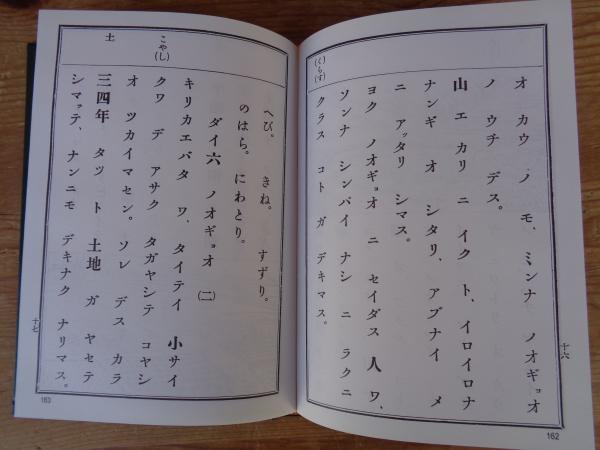 オ カウ ノ モ、 ミンナ ノオギョオ
ノ ウチ デス。
山 エ カリ ニ イク ト、イロイロナ
ナンギ オ シタリ、 アブナイ メ
ニ アッタリ シマス。
ヨク ノオギョオ ニ セイダス 人 ワ、
ソンナ シンパイ ナシ ニ ラクニ
クラス コト ガ デキマス。
(くら(す))
十六
162
へび。 きね。 すずり。
のはら。にわとり。
ダイ六 ノオギョオ (二)
キリカエバタ ワ、 タイテイ 小サイ
クワ デ アサク タガヤシテ コヤシ
オ ツカイマセン。 ソレ デス カラ
三四年 タツ ト 土地 ガ ヤセテ
シマッテ、ナンニモ デキナク ナリマス。
こや(し)
土
十七
163